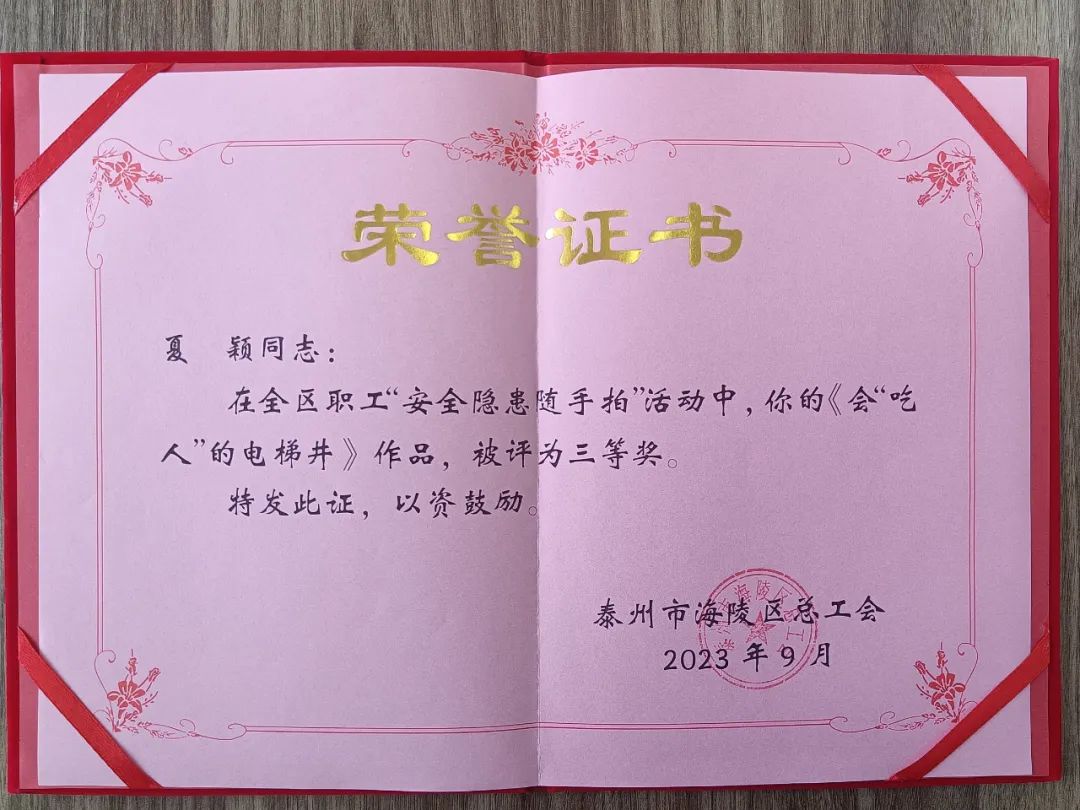 荣誉证书
夏 颖同志：
在全区职工“安全隐患随手拍”活动中，你的《会“吃
人”的电梯井》作品，被评为三等奖。
特发此证，以资鼓励。
泰州市海陵区总工会
2023 年 9 月